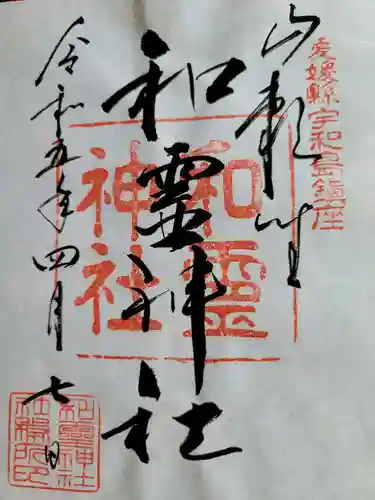 愛媛縣宇和島鎮座
和霊神社
和靈神社
令和五年四月七日
和霊神社社務所印